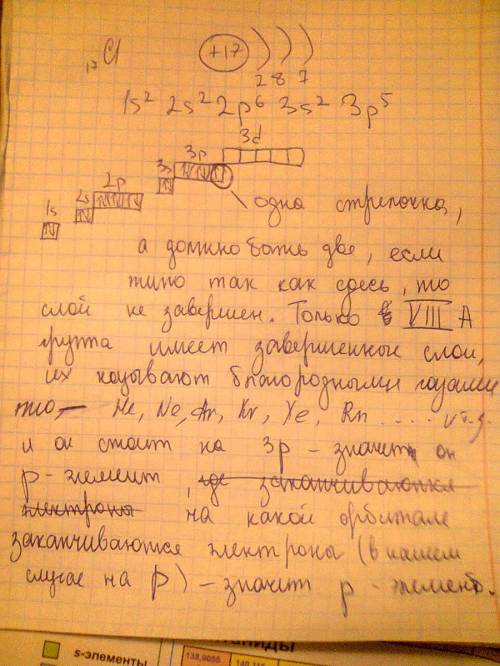 17Cl +17 ) ) )
2 8 7
1s² 2s² 2p⁶ 3s² 3p⁵
3d
3p
3s
2p
2s
1s
одна стрелочка,
а должно быть две, если
типо так как сдесь, то
слой не завершен. Только VIII A
группа имеет завершенные слои,
их называют благородными газами
это — He, Ne, Ar, Kr, Xe, Rn .... и т.д.
и он стоит на 3p – значит он
p-элемент, где заканчиваются
электроны на какой орбитале
заканчиваются электроны (в нашем
случае на p) – значит p-элемент.
s-элементы
138,9055
140,115